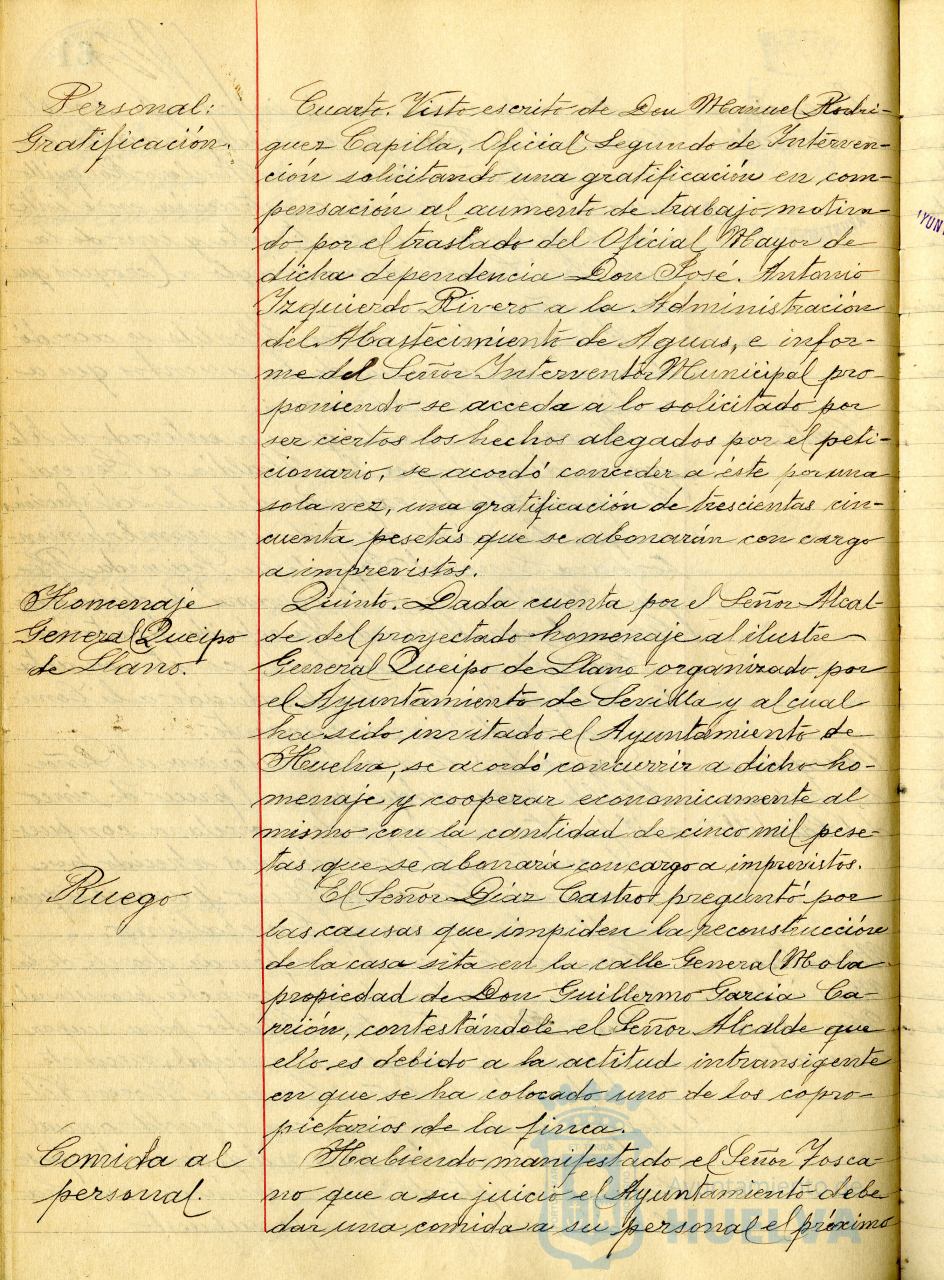 Personal:
Gratificación.
Cuarto. Visto escrito de Don Manuel Rodri-
guez Capilla, Oficial Segundo de Interven-
ción solicitando una gratificación en com-
pensación al aumento de trabajo motiva-
do por el traslado del Oficial Mayor de
dicha dependencia Don José. Antonio
Izquierdo Rivero a la Administración
del Abastecimiento de Aguas, e infor-
me del Señor Interventor Municipal pro-
poniendo se acceda a lo solicitado por
ser ciertos los hechos alegados por el peti-
cionario, se acordó conceder a éste por una
sola vez, una gratificación de trescientas cin-
cuenta pesetas que se abonarán con cargo
a imprevistos.
Homenaje
General Queipo
de Llano.
Quinto. Dada cuenta por el Señor Alcal-
de del proyectado homenaje al ilustre
General Queipo de Llano organizado por
el Ayuntamiento de Sevilla y al cual
ha sido invitado el Ayuntamiento de
Huelva, se acordó concurrir a dicho ho-
menaje y cooperar economicamente al
mismo con la cantidad de cinco mil pese-
tas que se abonaría con cargo a imprevistos.
Ruego
El Señor Díaz Castro preguntó por
las causas que impiden la reconstrucción
de la casa sita en la calle General Mola
propiedad de Don Guillermo García Ca-
rrión, contestándole el Señor Alcalde que
ello es debido a la actitud intransigente
en que se ha colocado uno de los copro-
pietarios de la finca.
Comida al
personal.
Habiendo manifestado el Señor Tosca-
no que a su juicio el Ayuntamiento debe
dar una comida a su personal el próximo
Ayuntamiento de
HUELVA
AYUN